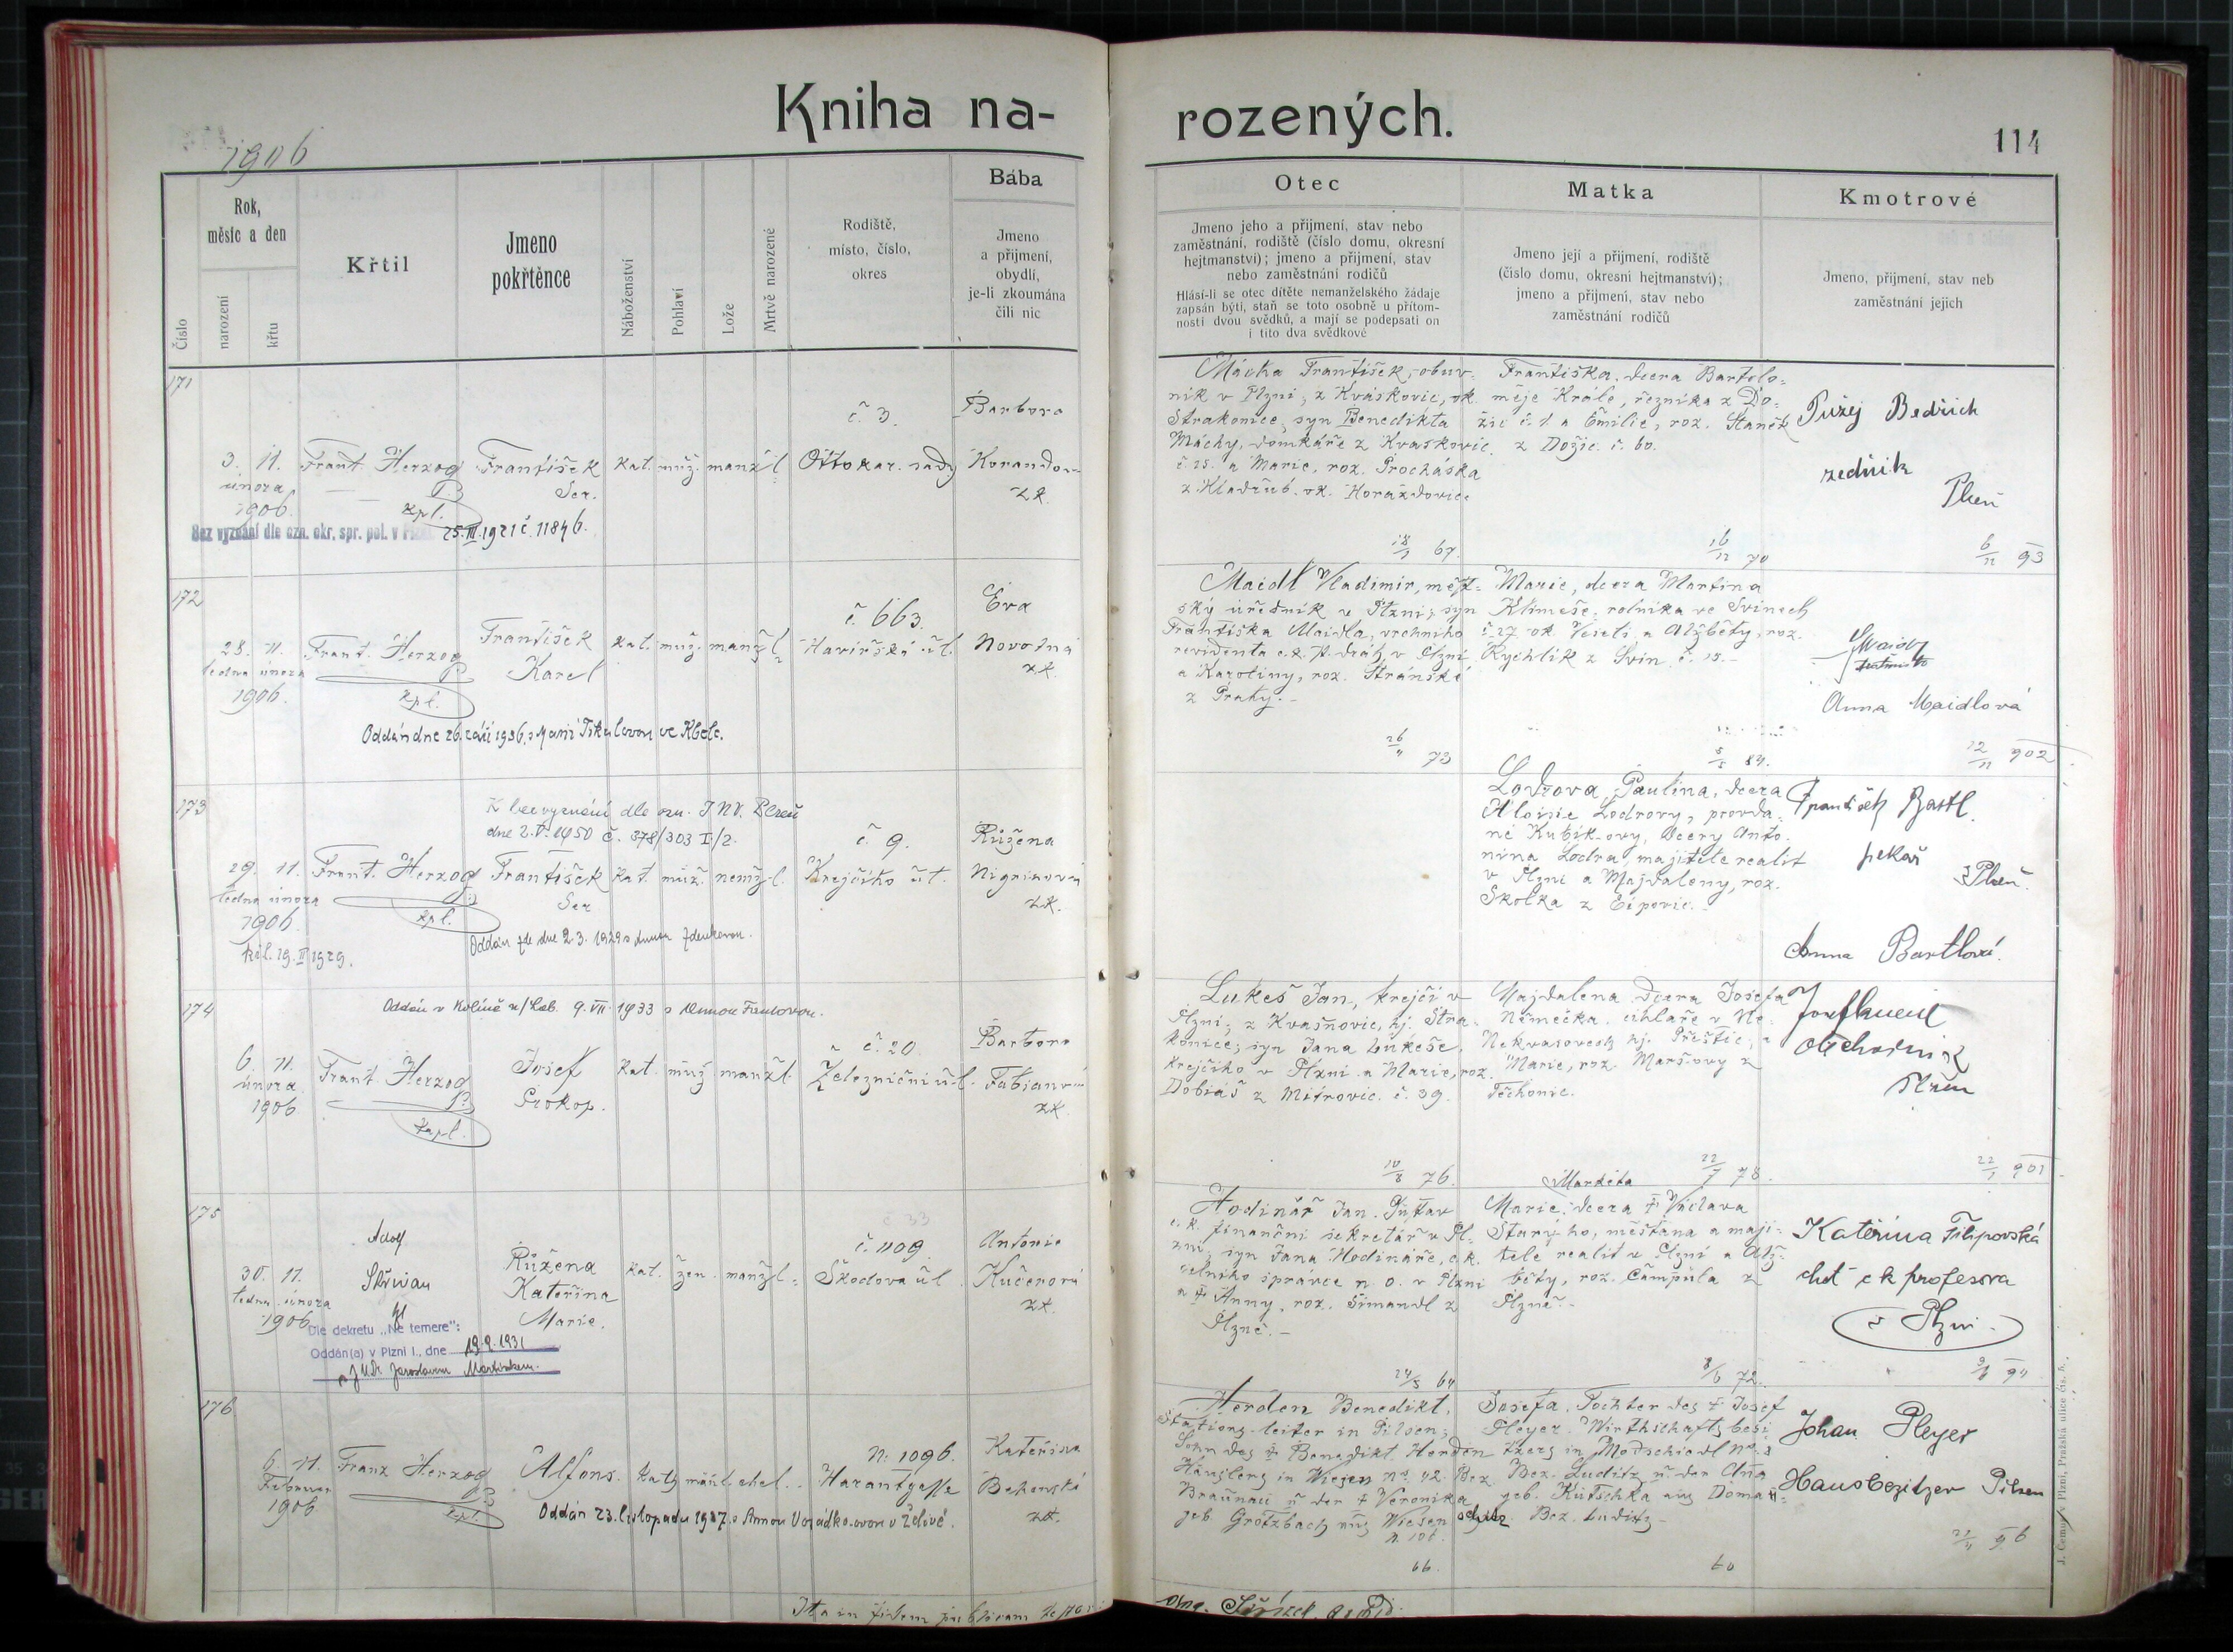 Kniha na-
rozených.
1906
114
Číslo
Rok,
měsíc a den
narození
křtu
Křtil
Jmeno
pokřtěnce
Náboženství
Pohlaví
Lože
Mrtvě narozené
Rodiště,
místo, číslo,
okres
Bába
Jmeno
a přijmení,
obydlí,
je-li zkoumána
čili nic
Otec
Jmeno jeho a přijmení, stav nebo
zaměstnání, rodiště (číslo domu, okresní
hejtmanství); jmeno a přijmení, stav
nebo zaměstnání rodičů
Hlásí-li se otec dítěte nemanželského žádaje
zapsán býti, staň se toto osobně u přítom-
nosti dvou svědků, a mají se podepsati on
i tito dva svědkové
Matka
Jmeno její a přijmení, rodiště
(číslo domu, okresní hejtmanství);
jmeno a přijmení, stav nebo
zaměstnání rodičů
Kmotrové
Jmeno, přijmení, stav neb
zaměstnání jejich
171
3. 11.
února
1906.
Frant. Herzog
kpl.
František
Ser.
kat. muž. manž l
č 3.
Ottokar. sady
Barbora
Korandov
zk.
Bez vyznání dle ozn. okr. spr. pol. v Plzni 25.III.1921 č 11846.
Mácha František, obuv-
ník v Plzni, z Kváskovic, ok.
Strakonice, syn Benedikta
Máchy, domkáře z Kváskovic
č. 25. a Marie, roz. Procháska
z Kladrub. ok. Horažďovice
18/3 67.
Františka, dcera Bartolo-
měje Krále, řezníka z Do-
žic č. 1. a Emilie, roz. Staněk
z Dožic. č. 60.
16/12 70
Pužej Bedřich
zedník
Plzeň
6/11 93
172
28. 11.
ledna února
1906.
Frant. Herzog
kpl.
František
Karel
kat. muž. manž l
č. 663.
Havířská ul.
Eva
Novotná
zk.
Oddán dne 26. září 1936, s Marií Tikalovou ve Kbele.
Maidl Vladimír, měst-
ský úředník v Plzni; syn
Františka Maidla, vrchního
revidenta c. k. st. dráh v Plzni
a Karoliny, roz. Stránské
z Prahy.-
26/4 73
Marie, dcera Martina
Klimeše, rolníka ve Svinech
č. 27 ok. Veselí a Alžběty, roz.
Rychlík z Svin. č. 15.-
5/5 84.
Anna Maidlová
12/11 902
173
K bezvyznání dle ozn. JNV. Plzeň
dne 2.V.1950 č. 378/303 I./2.
29. 11.
ledna února
1906.
křl. 19.II 1929.
Frant. Herzog
kpl.
František
Ser
kat. muž. nemž l.
č 9.
Krejčího ul.
Růžena
Nigrinová
zk.
Oddán zde dne 2.3. 1929 s Annou Zdeňkovou.
Lodrova Paulina, dcera
Aloisie Lodrovy, provda-
né Kubík-ovy, dcery Anto-
nína Lodra, majitele realit
v Plzni a Majdaleny, roz.
Skolka z Ejpovic.
František Bartl.
pekař
z Plzně.
Anna Bartlová.
174
Oddán v Kolíně n/Lab. 9.VII.1933 s Annou
6. 11.
února
1906
Frant. Herzog
kapl.
Josef
Prokop.
kat. muž manžl.
č. 20
Železniční ul.
Barbora
Fabianová
zk.
Lukeš Jan, krejčí v
Plzni; z Kvašnovic, hj. Stra-
konice; syn Jana Lukeše,
krejčího v Plzni a Marie, roz.
Dobiáš z Mitrovic. č. 39.
10/8 76.
Majdalena, dcera Josefa
Němečka, cihláře v Ne-
Nekvasovech hj. Přeštic, a
Marie, roz. Maršovy z
Těchonic.
22/7 78.
obchodník
Plzeň
22/1 901
175
30. 11.
ledna února
1906
Adolf
Skřivan
kpl
Růžena
Kateřina
Marie.
kat. žen. manžl.
č 33
č. 1109.
Škodova ul.
Antonie
Kučerová
zk.
Dle dekretu „Ne temere“:
Oddán(a) v Plzni I., dne 19.9.1931
s JUDr. Jaroslavem Martínkem.
Hodinář Jan Gustav
c. k. finanční sekretář v Pl-
zni; syn Jana Hodináře, c.k.
celního správce n. o. v Plzni
a † Anny, roz. Šimandl z
Plzně.-
24/5 64
Markéta
Marie, dcera † Václava
Starýho, měšťana a maji-
tele realit v Plzni a Alž-
běty, roz. Čampula z
Plzně.-
8/6 72.
Kateřina Filipovská
choť c k profesora
v Plzni.
176
6. 11.
Februar
1906
Franz Herzog
kpl.
Alfons.
kath. männl. ehel.
N. 1096.
Harantgasse
Kateřina
Behenská
zk.
Oddán 23. listopadu 1937. s Annou Vojádkovou v Želivě.
Herden Benedikt,
Stations-leiter in Pilsen;
Sohn des † Benedikt Herden
Häuslers in Wiesen No. 42. Bez.
Braunau u. der † Veronika
geb. Grötzbach aus Wiesen
N. 106.
66.
Josefa, Tochter des † Josef
Pleyer, Wirthschaftsbesi-
tzers in Modschiedl No. 3
Bez. Luditz u. der Anna
geb. Kutschka aus Doma-
schitz Bez. Luditz-
60
Johan Pleyer
Hausbesitzer Pilsen